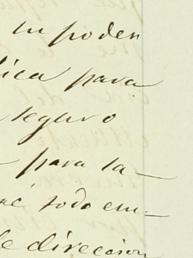 su poder
lica para
seguro
para la-
ue todo em-
le direccion